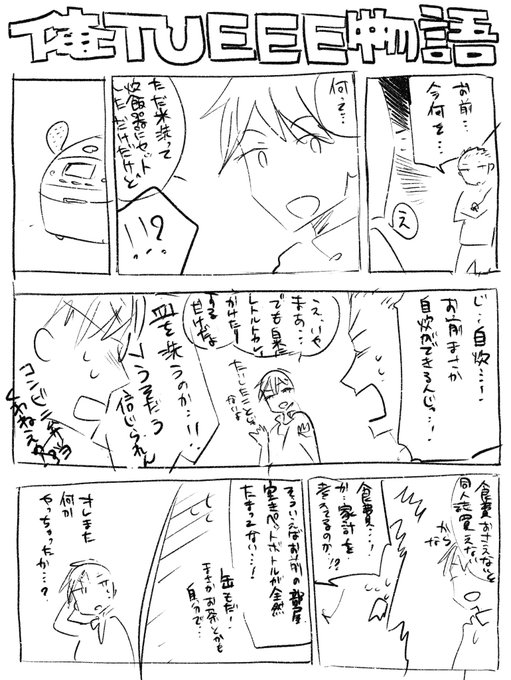 俺TUEEE物語
お前…
今何を…
え
何って…
ただ米洗って
炊飯器にセット
しただけだけど
!!?
じ…自炊…!
お前まさか
自炊ができるんじゃ…!
え、いや
まあ…
でも
レトルトカレー
かけたり
するだけだよ
たいしたことは
ないよ
皿を洗うのか…!!
うそだろう
信じられん
コンビニ弁当
食費おさえないと
同人誌買えない
からな
食費…!
か…家計を
考えてるのか!?
そういえばお前の部屋
空きペットボトルが全然
たまってない…!
缶もだ!
まさかお茶とかも
自分で…
オレまた
何か
やっちゃったか…?